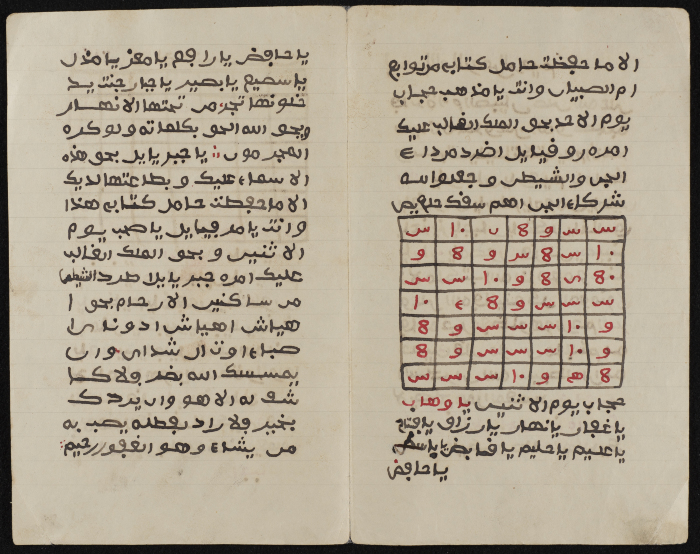 الا ما حفظت حامل كتابي من توابع
ام الصبيان وانت يا مذهب حجاب
يوم الاحد بحق الملك الغالب عليك
امره روفيايل اضرد مردا ء
الجن والشيطن وجعلوا لله
شركاء الجن اهم سقك حلع يص
س س و 8 ں 10 س
10 س 8 س و 8 و
80 ں 8 و 10 س س
س س س و 8 ء 10
و 10 س س س و 8
و 10 س س س و 8
8 هم و 10 س س س
حجاب يوم الاثنين يا وهاب
يا غفار يا نهار يا رزاق يا فتاح
يا عليم يا حليم يا قابض يا باسط
يا حافض
يا حافض يا رافع يا معز يا مذل
يا سميع يا بصير يا جبار جنت يد
خلونها تجر من تحتها الانهار
ويحق الله الحق بكلماته ولو كره
المجرمون يا جبر يايل بحق هذه
الاسماء عليك وبطاعتها لديك
الا ما حفظت حامل كتابي هذا
وانت يا مرفيايل يا صب يوم
الاثنين وبحق الملك الغالب
عليك امره جبر يايلا طرد الشيطن
من ساكنين الارحام بحق ا
هياش اهياش ادوناي ا
صباء اوتال شداي وان
يمسسك الله بضر فلا كا
شف له الا هو وان يردك
بخير فلا راد لفظله يصب به
من يشاء وهو الغفور رحيم